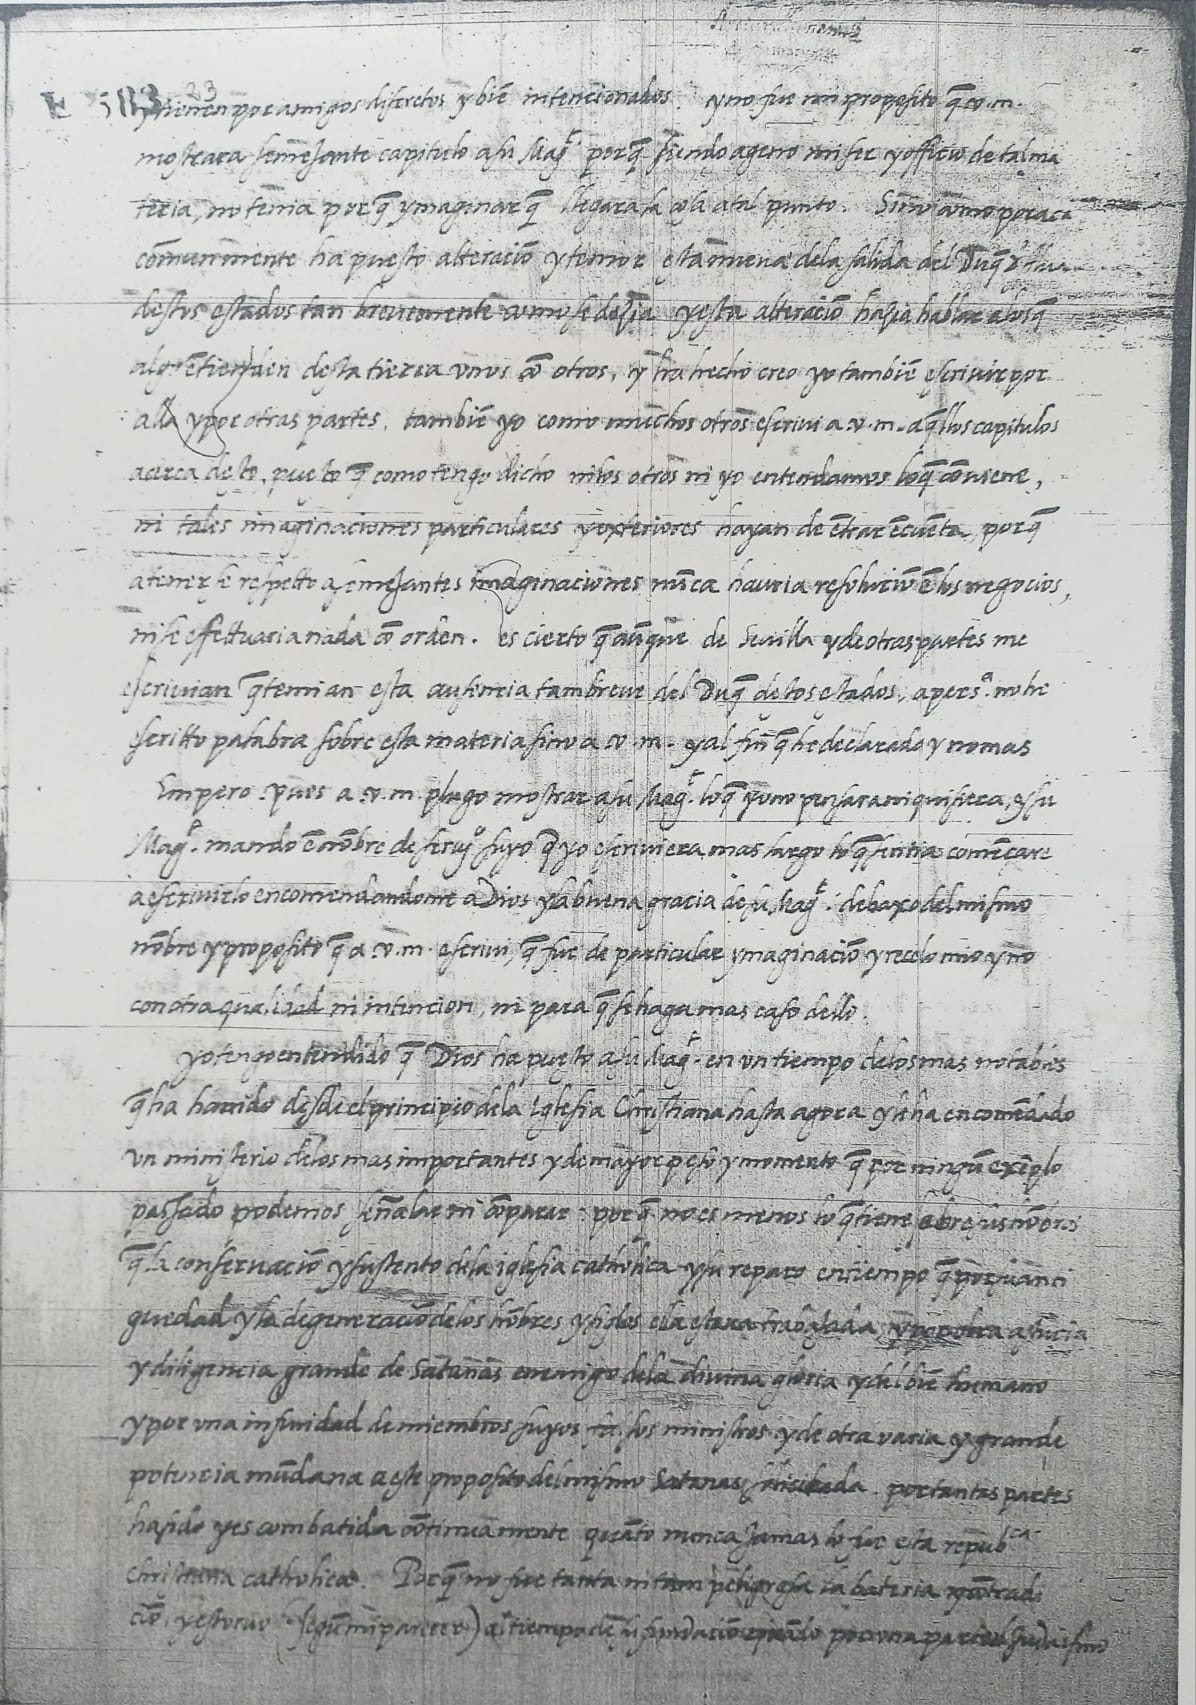 E 583 23
y tienen por amigos discretos y biē intencionados. y no fue mi proposito q̄ v. m.
mostrara semejante capitulo a su Mag.d porq̄ siendo ageno mi ser y officio de tal ma
teria, no tenia porq̄ ymaginar q̄ llegara la cosa a tal punto. Sino como por aca
cōmunmente ha puesto alteraciō y temor esta nueva dela salida del Duq̄
destos estados tan brevemente como se dezia y esta alteraciō hazia hablar a los q̄
algo ētienden desta tierra unos cō otros, y ha hecho creo yo tambiē escrivir por
alla y por otras partes. tambiē yo como muchos otros escrivi a v. m. aq̄llos capitulos
acerca desto, puesto q̄ como tengo dicho ni los otros ni yo entendamos lo q̄ cōviene,
ni tales imaginaciones particulares y exteriores hayan de ētrar ē cuēta, porq̄
a tenerse respetto a semejantes imaginaciones nūca havria resoluciō ē los negocios,
ni se effettuaria nada cō orden. es cierto q̄ aūque de Sevilla y de otras partes me
escrivian q̄ temian esta ausencia tam breve del Duq̄ destos estados, a pers.a no he
escritto palabra sobre esta materia sino a v. m. y al fin q̄ he declarado y no mas
Empero pues a v. m. plugo mostrar a su Mag.d lo q̄ yo no pensara ni quisiera, y su
Mag.d mando ē nōbre de serv.o suyo q̄ yo escriviera mas largo lo q̄ sentia comēçare
a escrivirlo encomendandome a Dios y a la buena gracia de su Mag.d debaxo del mismo
nōbre y proposito q̄ a v. m. escrivi, q̄ fue de particular ymaginaciō y recelo mio y no
con otra qualidad ni intencion, ni para q̄ se haga mas caso dello.
Yo tengo entendido q̄ Dios ha puesto a su Mag.d en un tiempo delos mas notables
q̄ ha havido desde el principio dela Iglesia Christiana hasta agora y le ha encomēdado
un ministerio delos mas importantes y de mayor peso y momento q̄ por ningū exēplo
passado podemos señalar ni cōparar: porq̄ no es menos lo q̄ tiene sobre sus hōbros
q̄ la conservaciō y sustento dela iglesia catholica y su reparo en tiempo q̄ por su anti
guedad y la degeneraciō delos hōbres y siglos ella estava trabajada, y por otra astucia
y diligencia grande de Satanas enemigo dela divina gloria y del biē humano
y por una infinidad de miembros suyos los ministros y de otra varia y grande
potencia mūdana a este proposito del mismo Satanas solicitada. por tantas partes
ha sido y es combatida cōtinuamente quāto nunca jamas lo fue esta repub.ca
christiana catholica. Porq̄ no fue tanta ni tam peligrosa la bateria y cōtradi
ciō y estorvo (segū mi parecer) al tiempo de su fundaciō por una parte el Judaismo